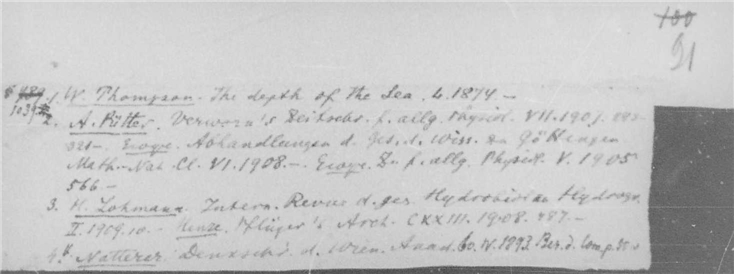 100
21
1. W. Thompson. The depth of the Sea. 4. 1874 –
2. A. Pütter. Verworn's Zeitschr. f. allg. Physiol. VII. 1907.
321 – Abhandlungen d. Ges. d. Wiss. zu Göttingen
Math.-Nat. Cl. VI. 1908. – Z. f. allg. Physiol. V. 1905
566 –
3. H. Lohmann. Intern. Revue d. ges. Hydrobiol. u. Hydrogr.
II. 1909. 10. – Henze. Pflüger's Arch. CXXIII. 1908. 487. –
4. Natterer. Denkschr. d. Wien. Akad. 60. 1893. Ber. d. Comm.